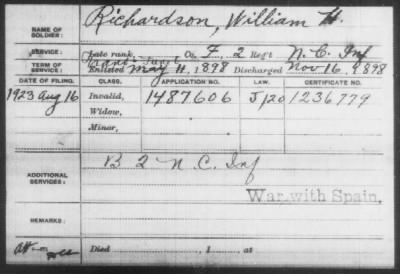 NAME OF SOLDIER: Richardson, William H.
SERVICE: Late rank, Co. F, 2 Reg't N.C. Inf
TERM OF SERVICE: Enlisted May 11, 1898 Discharged Nov 16, 1898
DATE OF FILING. CLASS. APPLICATION NO. LAW. CERTIFICATE NO.
1923 Aug 16 Invalid, 1487606 J120 1236779
Widow,
Minor,
ADDITIONAL SERVICES: B 2 N.C. Inf
War with Spain.
REMARKS:
Died , 1 , at